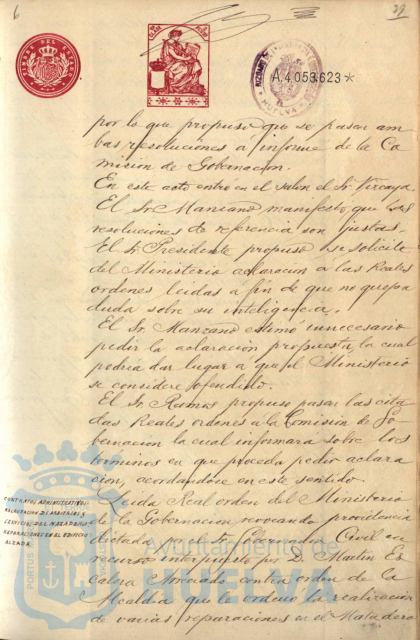 6
29
TIMBRE DEL ESTADO
A.4.053.623*
HUELVA
por lo que propuso que se pasar am
bas resoluciones a informe de la Co
mision de Gobernacion.
En este acto entro en el salon el Sr. Vizcaya
El Sr. Manzano manifestó que las
resoluciones de referencia son justas.
El Sr. Presidente propuso se solicite
del Ministerio aclaracion a las Reales
ordenes leidas a fin de que no quepa
duda sobre su inteligencia.
El Sr. Manzano estimó innecesario
pedir la aclaracion propuesta, la cual
podria dar lugar a que el Ministerio
se considere ofendido.
El Sr. Ramas propuso pasar las cita
das Reales ordenes a la Comision de Go-
bernacion la cual informara sobre los
terminos en que proceda pedir aclara
cion, acordandose en este sentido.
Leida Real orden del Ministerio
de la Gobernacion revocando providencia
dictada por el Sr. Gobernador Civil en
recurso interpuesto por D. Martin Es
calera Abogado contra orden de la
Alcaldia que le ordeno la realizacion
de varias reparaciones en el Matadero
SERVICIO DEL MATADERO
REPARACIONES EN EL EDIFICIO
ALZADA.
Ayuntamiento de
HUELVA
PORTUS